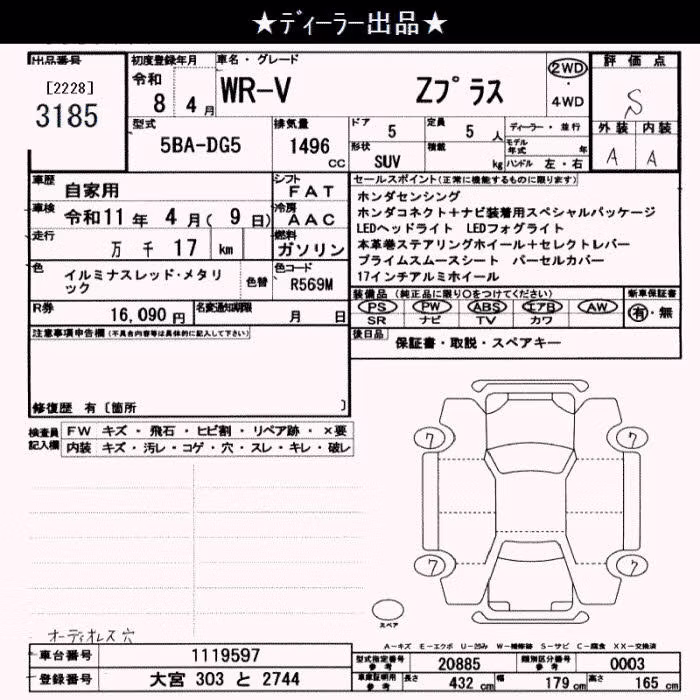 ★ディーラー出品★
出品番号 初度登録年月 車名・グレード 評価点
[2228] 令和 2WD
3185 8 4月 WR-V Zプラス ・ S
4WD
型式 排気量 ドア 定員 ディーラー・並行 外装 内装
5BA-DG5 1496 5 5人 モデル年式 年 A A
cc 形状 SUV 積載 kg ハンドル 左・右
車歴 自家用 シフト FAT セールスポイント(正常に機能するものに限ります)
車検 令和11年 4月(9日) 冷房 AAC ホンダセンシング
ホンダコネクト+ナビ装着用スペシャルパッケージ
走行 万 千 17 km 燃料 ガソリン LEDヘッドライト LEDフォグライト
本革巻ステアリングホイール+セレクトレバー
色 イルミナスレッド・メタリ 色替 色コード プライムスムースシート パーセルカバー
ック R569M 17インチアルミホイール
R券 16,090円 名変通知期限 月 日 装備品(純正品に限り○をつけてください) 新車保証書
PS PW ABS エアB AW 有・無
SR ナビ TV カワ
注意事項申告欄(不具合内容等は具体的に記入して下さい) 後日品 保証書・取説・スペアキー
修復歴 有〔箇所 〕
検査員 FW キズ・飛石・ヒビ割・リペア跡・×要
記入欄 内装 キズ・汚レ・コゲ・穴・スレ・キレ・破レ
7 7
7 7
スペア
オーディオレス穴
A-キズ E-エクボ U-凹み W-補修跡 S-サビ C-腐食 XX-交換済
車台番号 1119597 型式指定番号 参考 20885 類別区分番号 参考 0003
登録番号 大宮 303 と 2744 車庫証明用 参考 長さ 432cm 幅 179cm 高さ 165cm